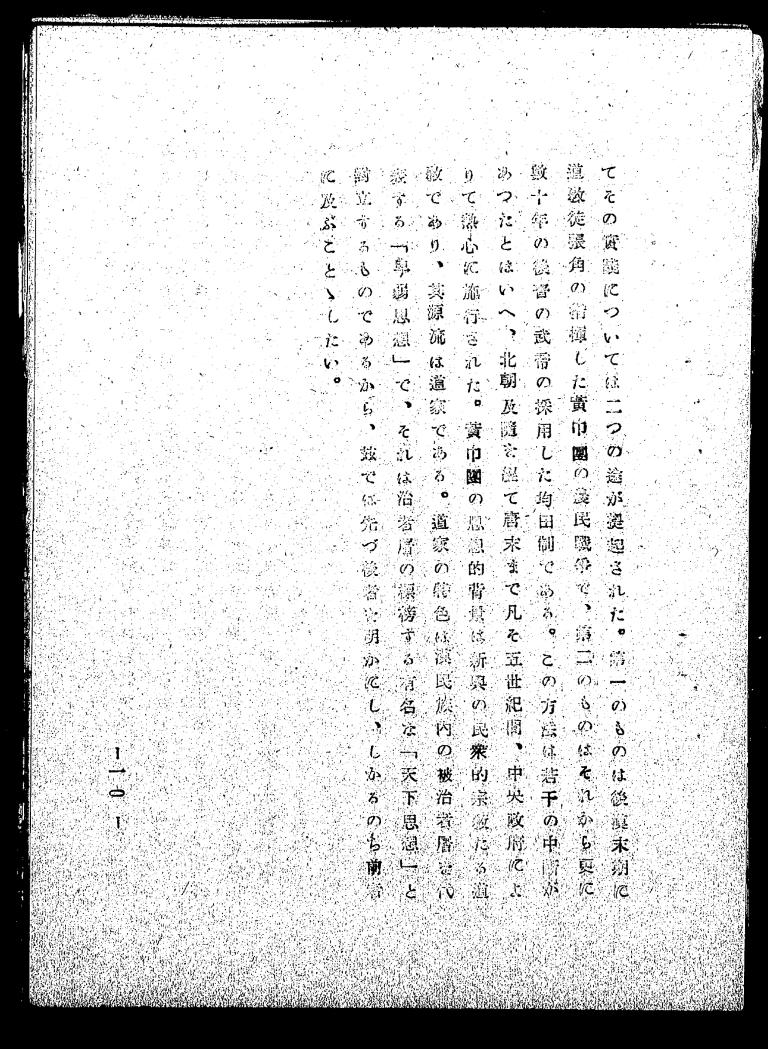 てその實踐については二つの途が提起された。第一のものは後漢末期に
道敎徒張角の指揮した黃巾團の農民戰爭で、第二のものはそれから更に
數十年の後晉の武帝の採用した均田制である。この方法は若干の中斷が
あつたとはいへ、北朝及隨を經て唐末まで凡そ五世紀間、中央政府によ
りて熱心に施行された。黃巾團の思想的背景は新興の民衆的宗敎たる道
敎であり、其源流は道家である。道家の特色は漢民族内の被治者層を代
表する「卑弱思想」で、それは治者層の標榜する有名な「天下思想」と
對立するものであるから、玆では先づ後者を明かにし、しかるのち前者
に及ぶことゝしたい。
— 一〇 —